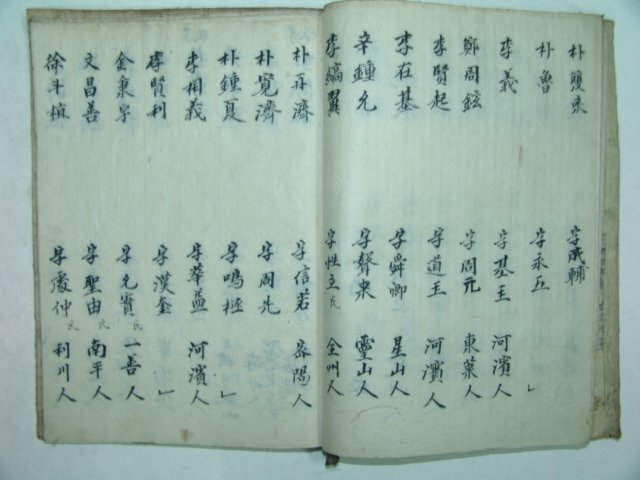 朴雙來 字成輔
朴魯 字永五 」
李義 字基玉 河濱人
鄭周鉉 字周元 東萊人
李賢起 字道玉 河濱人
李在基 字舜卿 星山人
辛鍾允 字聲來 靈山人
李鎬翼 字性立 民 全州人
朴再濟 字信若 岳陽人
朴寬濟 字周先
朴鍾夏 字鳴極
李相義 字華益 河濱人
李賢利 字漢奎 」
金秉宇 字允實 民 一善人
文昌善 字聖由 民 南平人
徐斗植 字慶仲 民 利川人